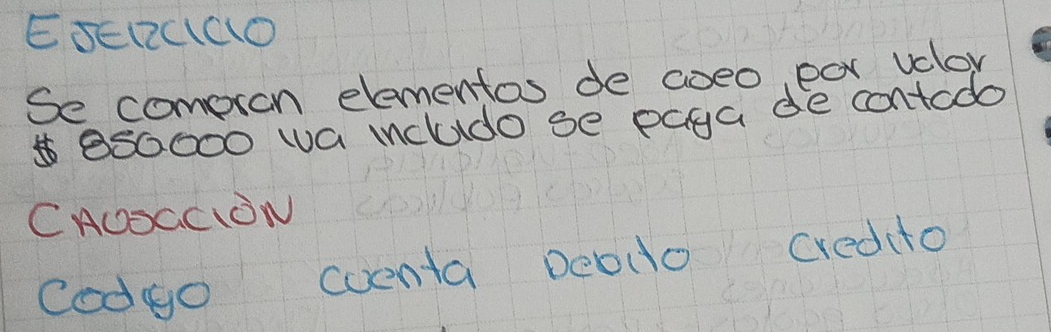 EJERCICIO
Se compran elementos de aseo por valor
$ 850.000 iva incluido se paga de contado
CAUSACIÓN
Codigo cuenta Debito credito